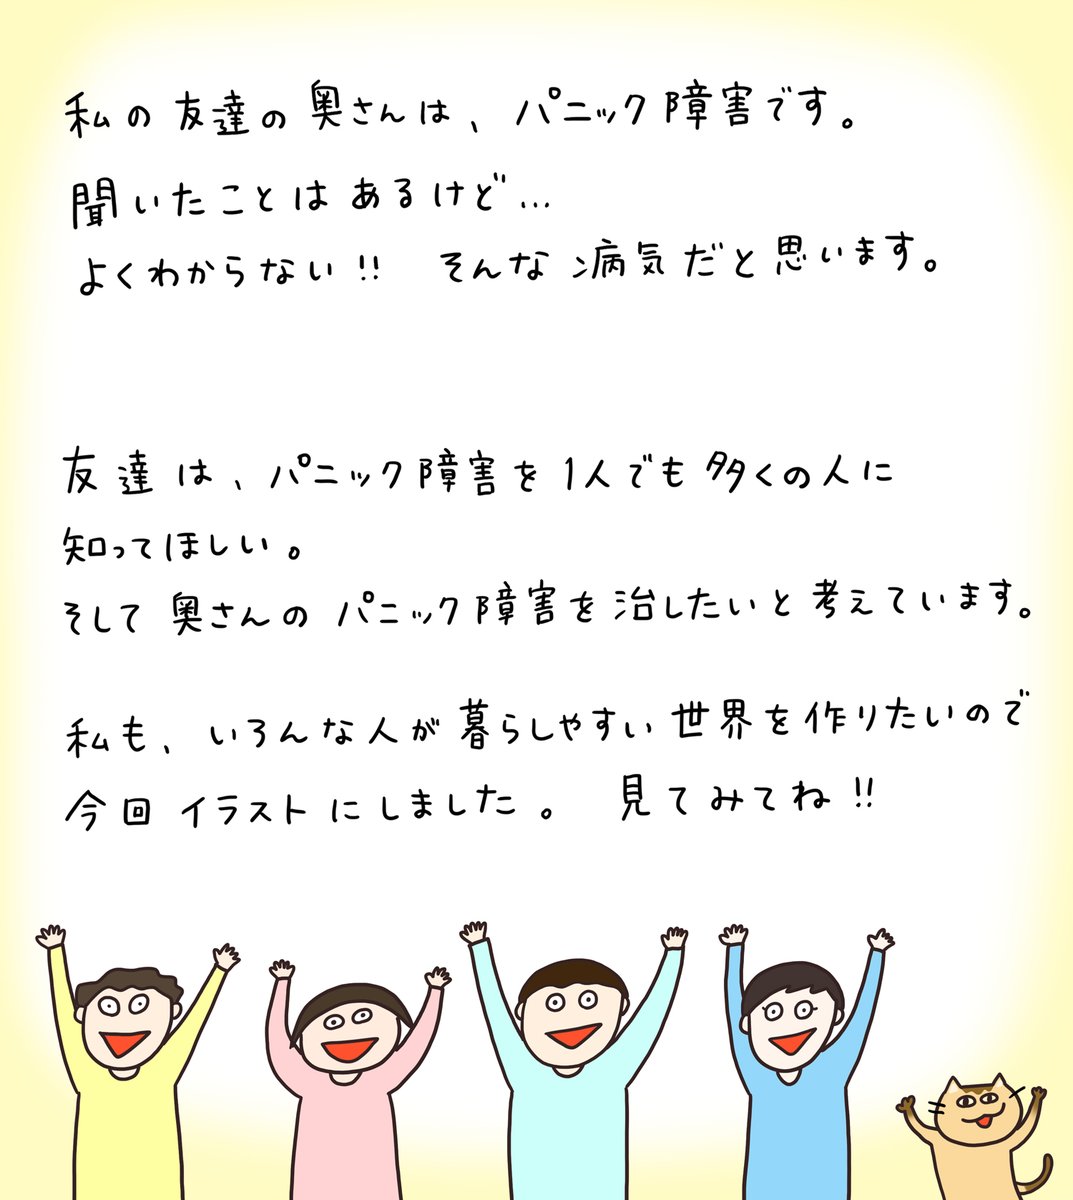 私の友達の奥さんは、パニック障害です。
聞いたことはあるけど…
よくわからない!! そんな病気だと思います。
友達は、パニック障害を1人でも多くの人に
知ってほしい。
そして奥さんのパニック障害を治したいと考えています。
私も、いろんな人が暮らしやすい世界を作りたいので
今回イラストにしました。 見てみてね!!